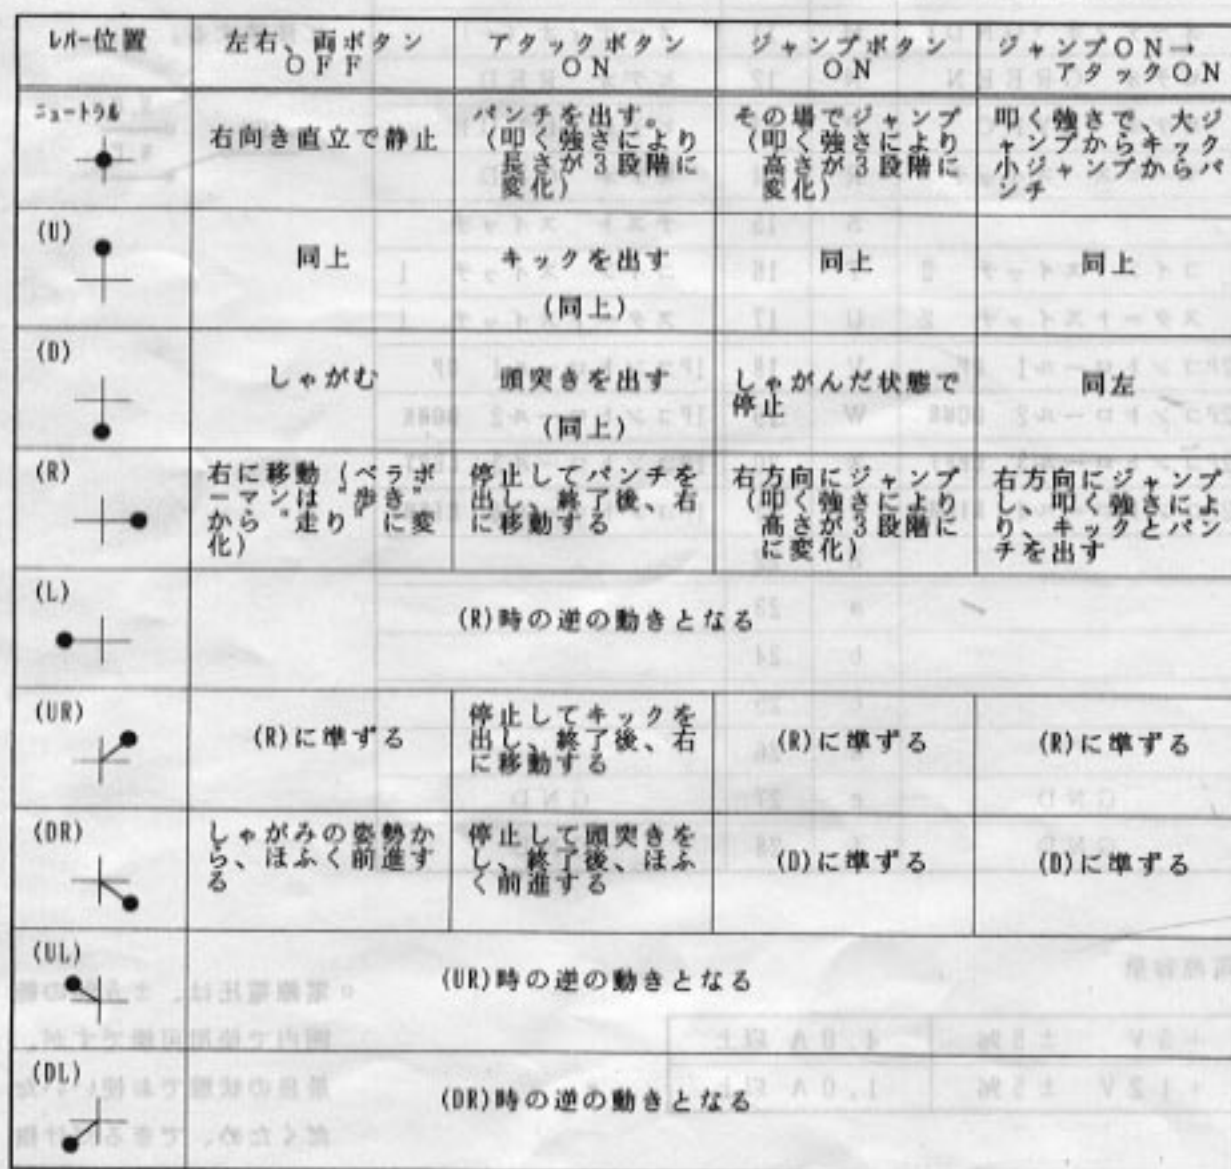 レバー位置
左右、両ボタン
OFF
アタックボタン
ON
ジャンプボタン
ON
ジャンプON→
アタックON
ニュートラル
右向き直立で静止
パンチを出す。
(叩く強さにより
長さが3段階に
変化)
その場でジャンプ
(叩く強さにより
高さが3段階に
変化)
叩く強さで、大ジ
ャンプからキック
小ジャンプからパ
ンチ
(U)
同上
キックを出す
(同上)
同上
同上
(D)
しゃがむ
頭突きを出す
(同上)
しゃがんだ状態で
停止
同左
(R)
右に移動(ベラボ
ーマンは"歩き"
から"走り"に変
化)
停止してパンチを
出し、終了後、右
に移動する
右方向にジャンプ
(叩く強さにより
高さが3段階に
に変化)
右方向にジャンプ
し、叩く強さによ
り、キックとパン
チを出す
(L)
(R)時の逆の動きとなる
(UR)
(R)に準ずる
停止してキックを
出し、終了後、右
に移動する
(R)に準ずる
(R)に準ずる
(DR)
しゃがみの姿勢か
ら、ほふく前進す
る
停止して頭突きを
し、終了後、ほふ
く前進する
(D)に準ずる
(D)に準ずる
(UL)
(UR)時の逆の動きとなる
(DL)
(DR)時の逆の動きとなる